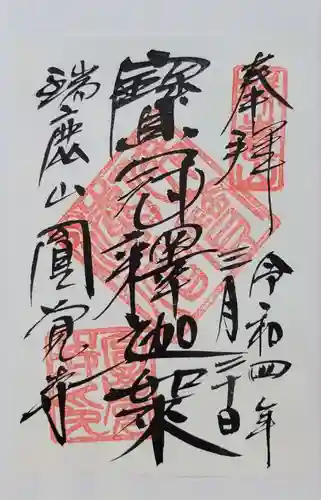 奉拝
令和四年
三月三十日
寶冠釋迦如来
瑞鹿山
圓覚寺